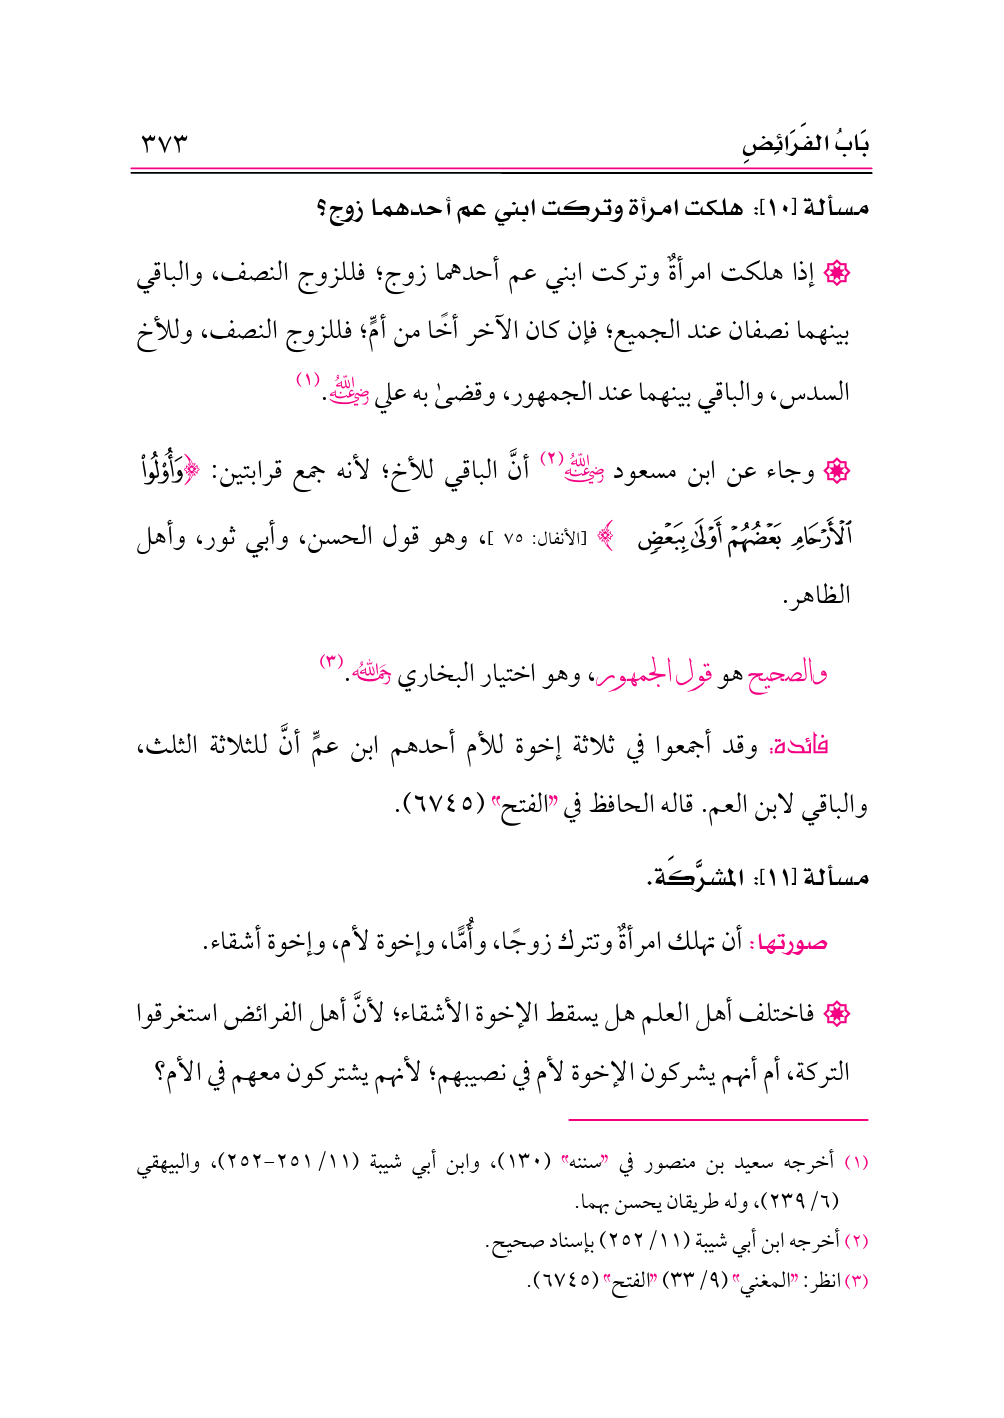 بَابُ الفَرَائِضِ ٣٧٣
مسألة [١٠]: هلكت امرأة وتركت ابني عم أحدهما زوج؟
إذا هلكت امرأةٌ وتركت ابني عم أحدهما زوج؛ فللزوج النصف، والباقي
بينهما نصفان عند الجميع؛ فإن كان الآخر أخًا من أمٍّ؛ فللزوج النصف، وللأخ
السدس، والباقي بينهما عند الجمهور، وقضىٰ به علي رضي الله عنه. (١)
وجاء عن ابن مسعود رضي الله عنه (٢) أنَّ الباقي للأخ؛ لأنه جمع قرابتين: ﴿وَأُوْلُواْ
ٱلْأَرْحَامِ بَعْضُهُمْ أَوْلَىٰ بِبَعْضٍ﴾ [الأنفال: ٧٥]، وهو قول الحسن، وأبي ثور، وأهل
الظاهر.
والصحيح هو قول الجمهور، وهو اختيار البخاري رحمه الله. (٣)
فائدة: وقد أجمعوا في ثلاثة إخوة للأم أحدهم ابن عمٍّ أنَّ للثلاثة الثلث،
والباقي لابن العم. قاله الحافظ في "الفتح" (٦٧٤٥).
مسألة [١١]: المشرَّكَة.
صورتها: أن تهلك امرأةٌ وتترك زوجًا، وأُمًّا، وإخوة لأم، وإخوة أشقاء.
فاختلف أهل العلم هل يسقط الإخوة الأشقاء؛ لأنَّ أهل الفرائض استغرقوا
التركة، أم أنهم يشركون الإخوة لأم في نصيبهم؛ لأنهم يشتركون معهم في الأم؟
(١) أخرجه سعيد بن منصور في "سننه" (١٣٠)، وابن أبي شيبة (١١/ ٢٥١-٢٥٢)، والبيهقي
(٦/ ٢٣٩)، وله طريقان يحسن بهما.
(٢) أخرجه ابن أبي شيبة (١١/ ٢٥٢) بإسناد صحيح.
(٣) انظر: "المغني" (٩/ ٣٣) "الفتح" (٦٧٤٥).